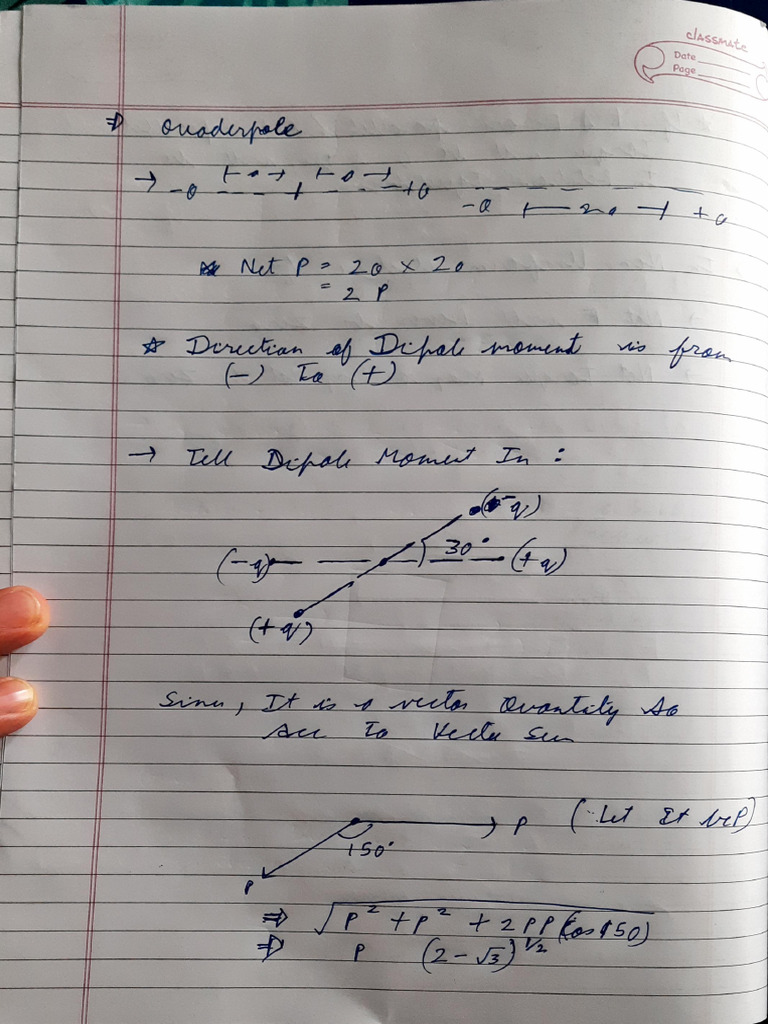 classmate
Date
Page
⇒ Quaderpole
→ -Q ⊢ a → + ⊢ a → +Q
-Q ⊢ 2a ⊣ +Q
☆ Net P = 2Q × 2a
= 2 P
☆ Direction of Dipole moment is from
(-) To (+)
→ Tell Dipole Moment In :
(-q)
(-q) 30° (+q)
(+q)
Since, It is a vector Quantity So
Acc To Vector Sum
P (∴ Let It be P)
150°
P
⇒ √P² + P² + 2PP (Cos 150)
⇒ P (2-√3)^1/2